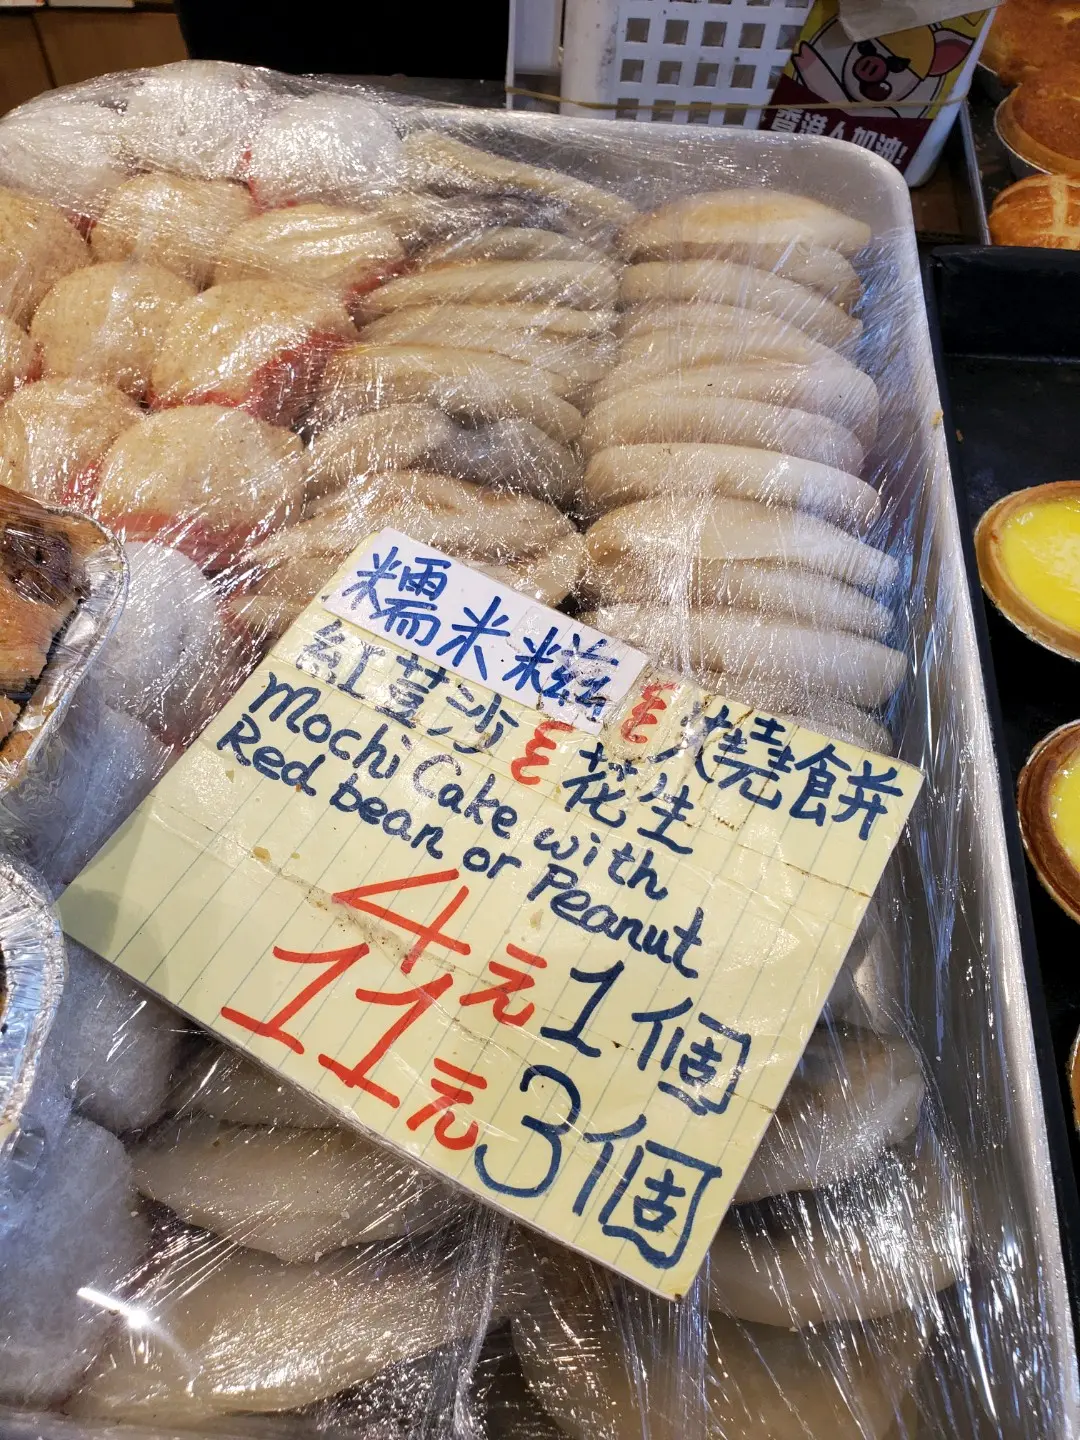 香港人加油!
糯米糍 燒餅
紅荳沙 花生
Mochi Cake with
Red bean or Peanut
4元1個
11元3個